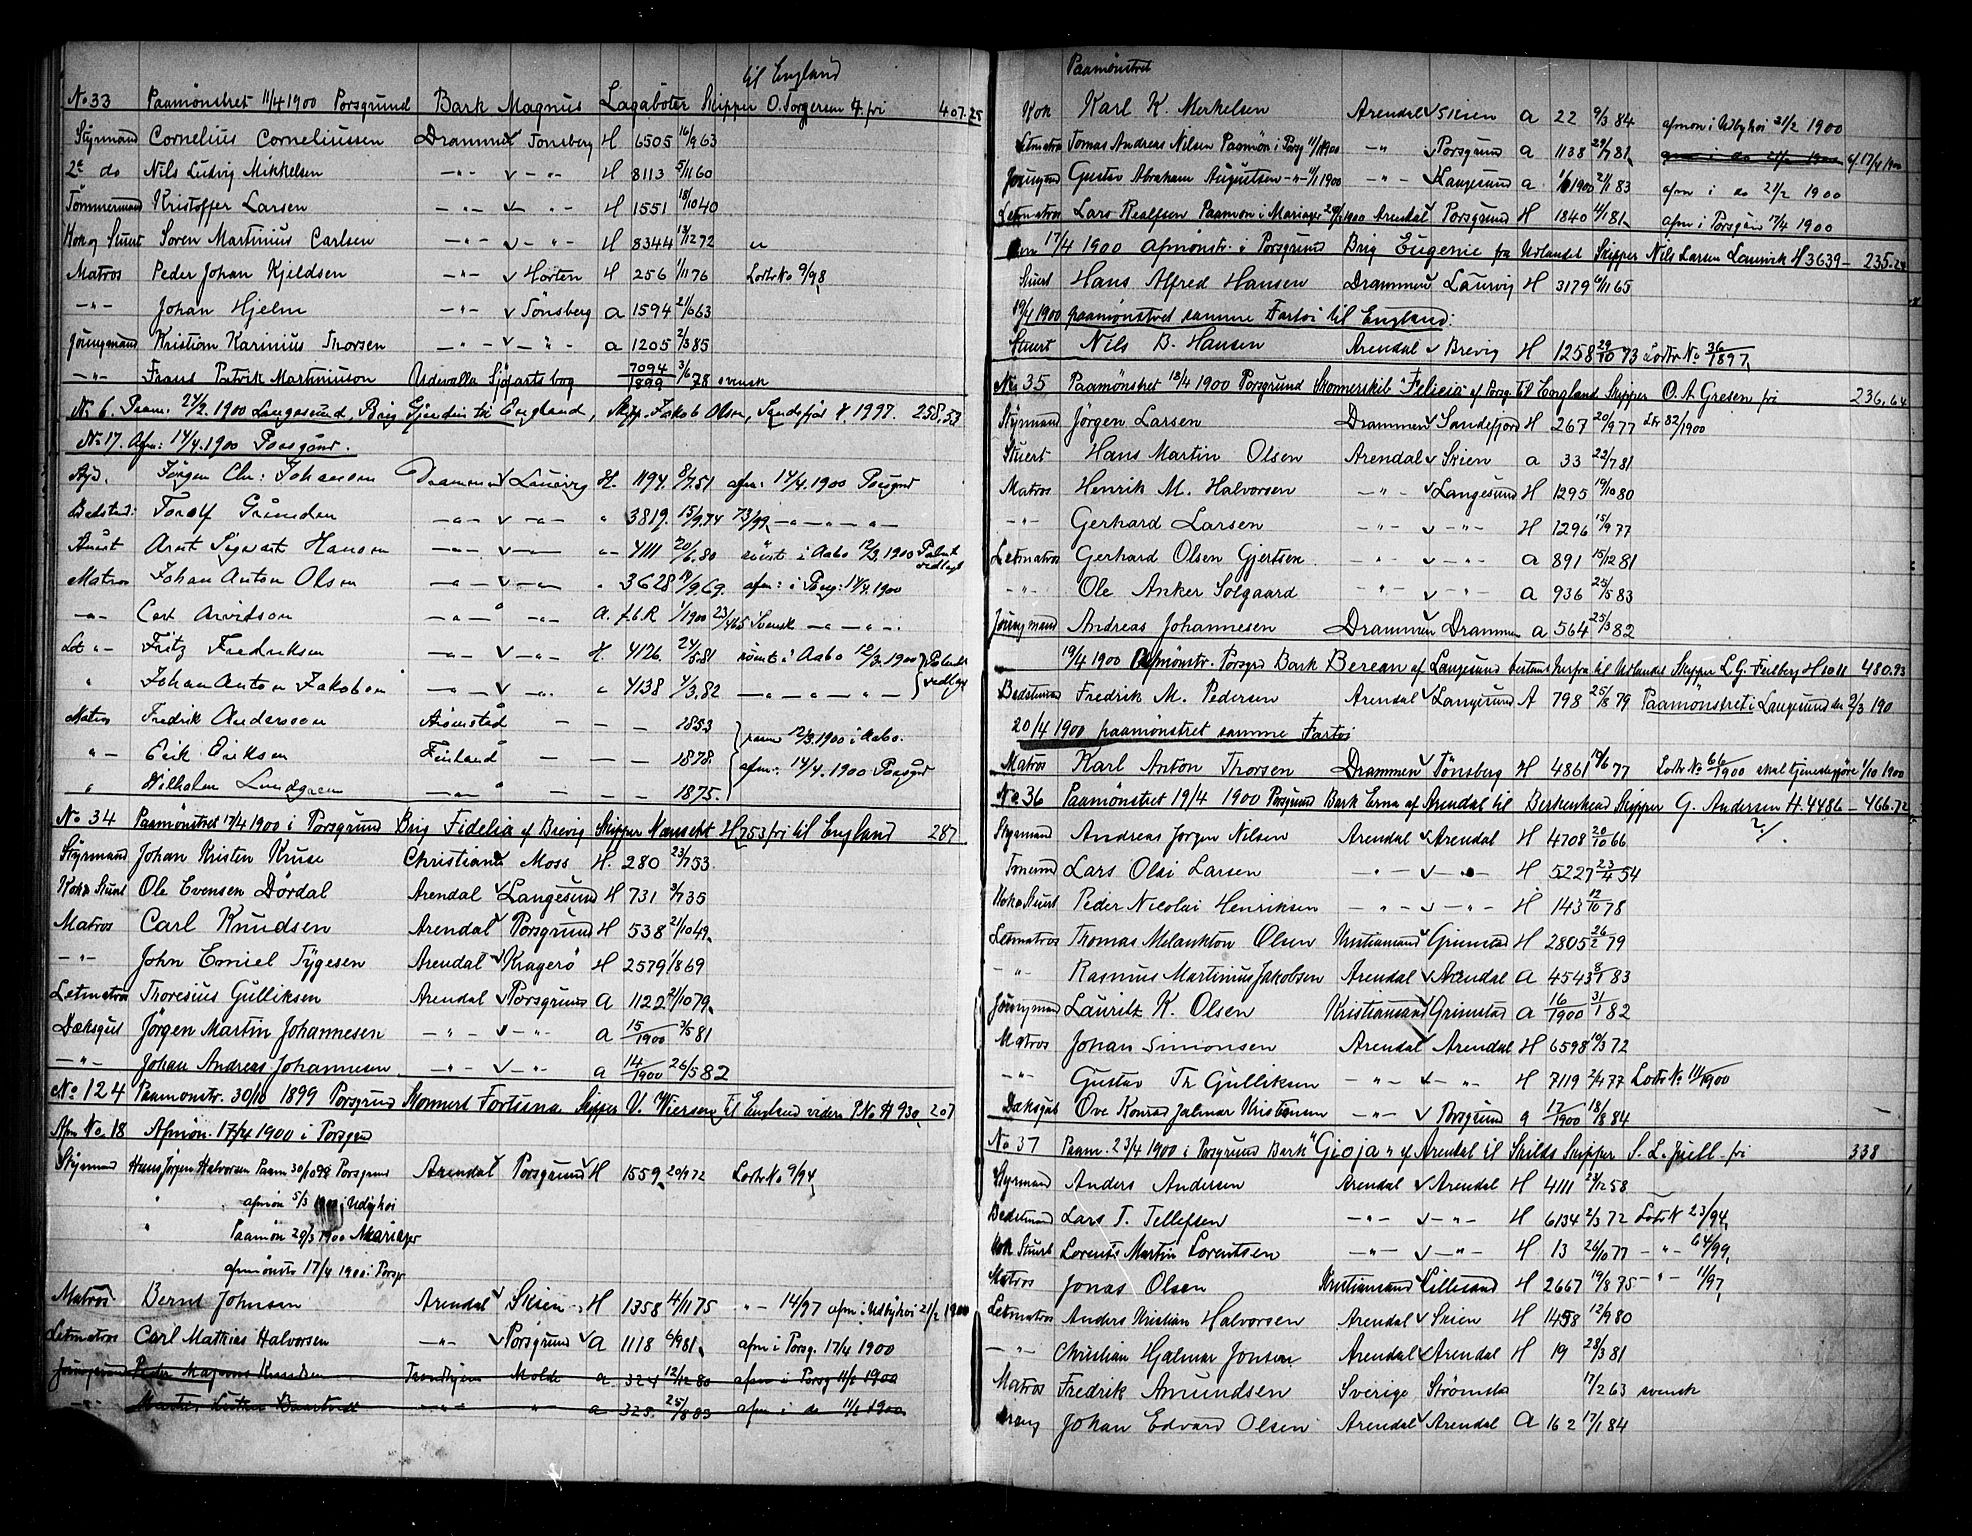 til England
No 33 Paamönstret 11/4 1900 Porsgrund Bark Magnus Lagaböter Skipper O. Torgersen H. fri 407.25
Styrmand Cornelius Corneliussen Drammen v Tonsberg H 6505 16/9 63
2e do Nils Ludvig Mikkelsen -"- v -"- H 8113 5/11 60
Tömmermand Kristoffer Larsen -"- v -"- H 1551 18/10 40
Kok og Stuert Soren Martinius Carlsen -"- v -"- H 8344 13/12 72
Matros Peder Johan Kjeldsen -"- v Horten H 256 1/11 76 Lodts No 9/98
-"- Johan Hjelm -"- v Tönsberg a 1594 21/6 63
Jüngmand Kristian Karinius Thorsen -"- v -"- a 1205 2/3 85
-"- Frans Patrik Martinuson Udevalla Sjöfartsbog 7094/1899 3/6 78 svensk
No 6. Paam. 24/2. 1900 Langesund, Brig Gjendin til England, Skpp. Jakob Olsen, Sandefjör H. 1997. 258,53
No 17. Afm: 14/4. 1900 Porsgund.
Jörgen Chr: Johansen Drammen v Laurvig H. 1194. 8/7.51 afm: 14/4. 1900 Porsgrd
Bedstnd: Torolf -"- v -"- " 3819. 15/9.74 73/99 -"- -"-
Stuert Arnt Sigvart Hansen -"- v -"- -"- 4111 20/6.80 römt i Aabo 12/3. 1900 Patent vedlagt
Matros Johan Anton Olsen -"- v -"- " 3628 19/9.69. afm: i Porsg: 14/4. 1900
-"- Carl Arvidson -"- -"- a. f.b.R 1/1900 23/4 65 Svensk -"- -"-
Let -"- Fritz Fredriksen -"- v -"- H. 4126. 24/5.81 römt i Aabo 12/3. 1900 Patent vedlagt
" Johan Anton Jakobsen -"- v -"- " 4138 4/3.82 -"- -"- -"-
Matros Fredrik Andersson — — 1853
"- Erik Eriksen Finland — — — 1878. paam 12/3. 1900 i Aabo.
" Vilhelm Lundgren -"- — — — 1875. afm: 14/4. 1900 Porsgrd
No 34 Paamönstret 17/4 1900 i Porsgrund Brig Fidelia af Brevig Skipper H 753 fri til England 287
Styrmand Johan Kristen Kruse Christiania Moss H. 280 23/7 53.
Kok & Stuert Ole Evensen Dördal Arendal v Langesund H 731 3/7 35
Matros Carl Knudsen Arendal v Porsgrund H 538 21/10 49
-"- John Emiel Tygesen Arendal v Kragerö H 2579 1/8 69
Letmatros Thoresius Gulliksen Arendal v Porsgrund a 1122. 21/10 79
Dæksgut Jörgen Martin Johannesen -"- v -"- a 15/1900 3/5 81
-"- Johan Andreas Johannesen -"- v -"- a 14/1900 26/5 82
No 124 Paamonstr. 30/10 1899 Porsgrund Skonnert Fortuna Skipper V. Wiersen til England videre P. No H 930 207
Afm No 18 Afmön. 17/4 1900 i Porsgrd
Styrmand Hans Jörgen Halvorsen Paam 30/10 99 Porsgrund Arendal v Porsgrund v H 1559 20/9 72 Lodts No 9/94
" afmön 5/3 1900 i Udbyhöi
" Paamön 20/3 1900 Mariager
afmönstr 17/4 1900 i Porsgr
Matros Bernt Johnsen Arendal v Skien H 1358 4/11 75 "- 14/97 afm i Udbyhöi 21/2 1900
Letmatros Carl Mathias Halvorsen -"- v Porsgrund v a 1118 6/9 81 afm i Porsg. 17/4 1900
Jüngmand Peder Magnus Knudsen Trondhjem Molde a 324 12/12 80 afm i Porsg 11/1 1900
-"- -"- " a 325. 25/8 83 afm i do 11/1 1900
Paamönstret
Kok Karl K. Merkelsen Arendal v Skien a 22 9/3 84 afmön i Udbyhöi 21/2 1900
Letmatros Tomas Andreas Nilsen Paamön i Porsg 11/1 1900 -"- v Porsgrund a 1138 29/7 81 afm i do 21/2 1900 af 17/4 1900
Jüngmand Gustav Abraham Augustsen -"- 11/1 1900 -"- v Langesund a 1/1900 21/1 83 afm i do 21/2 1900
Letmatros Lars Realfsen Paamön i Mariager 20/3 1900 Arendal v Porsgrund H 1840 4/1 81 afm i Porsgrd 17/4 1900
Den 17/4 1900 afmönstr. i Porsgrund Brig Eugenie fra Udlandet Skipper Nils Larsen Laurvik H 3639 — 235.24
Stuert Hans Alfred Hansen Drammen v Laurvig H 3179 6/11 65
19/4 1900 paamönstret samme Fartöi til England:
Stuert Nils B. Hansen Arendal v Brevig H 1258 29/10 73 Lodts No 36/1897
No 35 Paamönstret 18/4 1900 Porsgrund Skonnerskib "Felicia" af Porsg. til England Skipper O. A. Gresen fri 236.64
Styrmand Jörgen Larsen Drammen v Sandefjord H 267 20/9 77 Ldr 82/1900
Stuert Hans Martin Olsen Arendal v Skien a 33 22/7 81
Matros Henrik M. Halvorsen -"- v Langesund H 1295 19/10 80
-"- Gerhard Larsen -"- v -"- H 1296 15/9 77
Letmatros Gerhard Olsen Gjertsen -"- v -"- a 891 15/12 81
-"- Ole Anker Solgaard -"- v -"- a 936 25/5 83
Jüngmand Andreas Johannesen Drammen v Drammen a 564 25/3 82
19/4 1900 Afmönstr. Porsgrd Bark Berean af Langesund bestemt herfra til Udlandet Skipper L. G. Feilberg H 1011 480.93
Bedstemand Fredrik M. Pedersen Arendal v Langesund A 798 25/8 79 Paamönstret i Langesund den 2/3 190
20/4 1900 paamönstret samme Fartöi
Matros Karl Anton Thorsen Drammen v Tönsberg H 4861 15/6 77 Lodts No 66/1900 skal tjenestegjöre 1/10 1900
No 36 Paamönstret 19/4 1900 Porsgrund Bark Erna af Arendal til Berkenhead Skipper G. Andersen H. 4486 — 466.72
Styrmand Andreas Jörgen Nilsen Arendal v Arendal H 4708 20/10 66
Tömmd Lars Olsi Larsen -"- v -"- H 5227 23/4 54
Kok & Stuert Peder Nicolai Henriksen -"- v -"- H 143 12/10 78
Letmatros Thomas Melankton Olsen Kristiansand v Grimstad H 2805 26/2 79
-"- Rasmus Martinius Jakobsen Arendal v Arendal a 4543 8/1 83
Jüngmand Lauritz K. Olsen Kristiansand v Grimstad a 16/1900 31/1 82
Matros Johan Simonsen Arendal v Arendal H 6598 10/3 72
-"- Gustav Th Gulliksen -"- v -"- H 7119 2/4 77 Lodts No 111/1900
Dæksgut Ove Konrad Jalmar Kristensen -"- v Porsgrund a 17/1900 18/8 84
No 37 Paam. 23/4 1900 i Porsgrund Bark "Gioja" af Arendal til Skilds Skipper S. L. Juell. fri 338
Styrmand Anders Andersen Arendal v Arendal H 4111 23/12 58
Bedstmand Lars T. Tellefsen -"- v -"- H 6134 2/3 72 Lodts N 23/94
Kok Stuert Lorents Martin Lorentsen -"- v -"- H 13 26/10 77 -"- 64/99
Matros Jonas Olsen Kristiansand v Lillesand H 2667 19/8 75 -"- 11/97
Letmatros Anders Kristian Halvorsen Arendal v Skien H 1458 12/9 80
-"- Christian Hjalmar Jonsen Arendal v Arendal H 19 28/3 81
Matros Fredrik Amundsen Sverige Strömsta 17/2 63 svensk
Johan Edvard Olsen Arendal v Arendal a 162 17/1 84